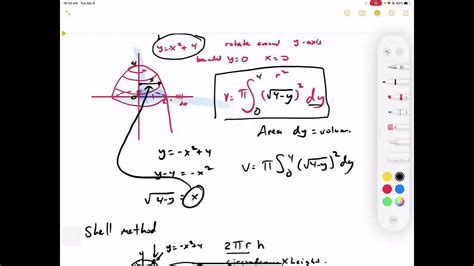 10:33 AM Tue Apr 9
y=-x²+4 rotate around y-axis
bounded y=0 x=0
V= π∫₀⁴ (√4-y)² dy
r²
Area dy = volum.
y=-x²+4
y-4=-x²
√4-y = x
V= π∫₀⁴ (√4-y)² dy
Shell method
y=-x²+4
2πr h
x height.